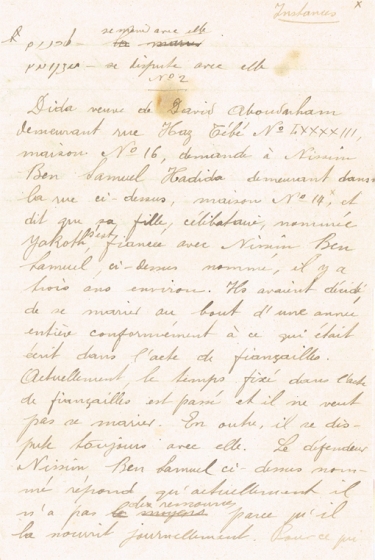 Instances x
se marie avec elle
la marier
se dispute avec elle
No 2
Dida veuve de David Aboudarham
demeurant rue No LXXXXIII,
maison No 16, demande à Nissim
Ben Samuel Hadida demeurant dans
la rue ci-dessus, maison No 14, et
dit que sa fille, célibataire, nommée
Yakoth, s'est fiancée avec Nissim Ben
Samuel, ci-dessus nommé, il y a
trois ans environ. Ils avaient décidé,
de se marier au bout d'une année
entière conformément à ce qui était
écrit dans l'acte de fiançailles.
Actuellement, le temps fixé dans l'acte
de fiançailles est passé et il ne veut
pas se marier. En outre, il se dis-
pute toujours avec elle. Le défendeur
Nissim Ben Samuel ci-dessus nom-
mé répond qu'actuellement il
n'a pas le moyens des ressources parce qu'il
la nourrit journellement. Pour ce qui